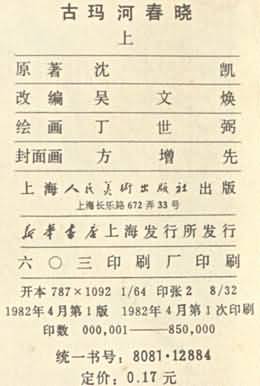 古玛河春晓
上
原著 沈凯
改编 吴文焕
绘画 丁世弼
封面画 方增先
上海人民美術出版社出版
上海长乐路672弄33号
新华书店上海发行所发行
六〇三印刷厂印刷
开本 787×1092 1/64 印张 2 8/32
1982年4月第1版 1982年4月第1次印刷
印数 000,001——850,000
统一书号:8081·12884
定价:0.17元